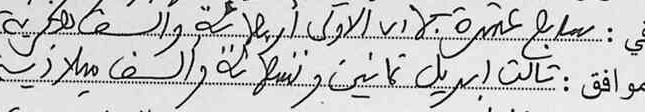 في : سابع عشرة جمادى الأولى أربعمائة وألف هجرية
موافق : ثالث ابريل ثمانين وتسعمائة وألف ميلادية